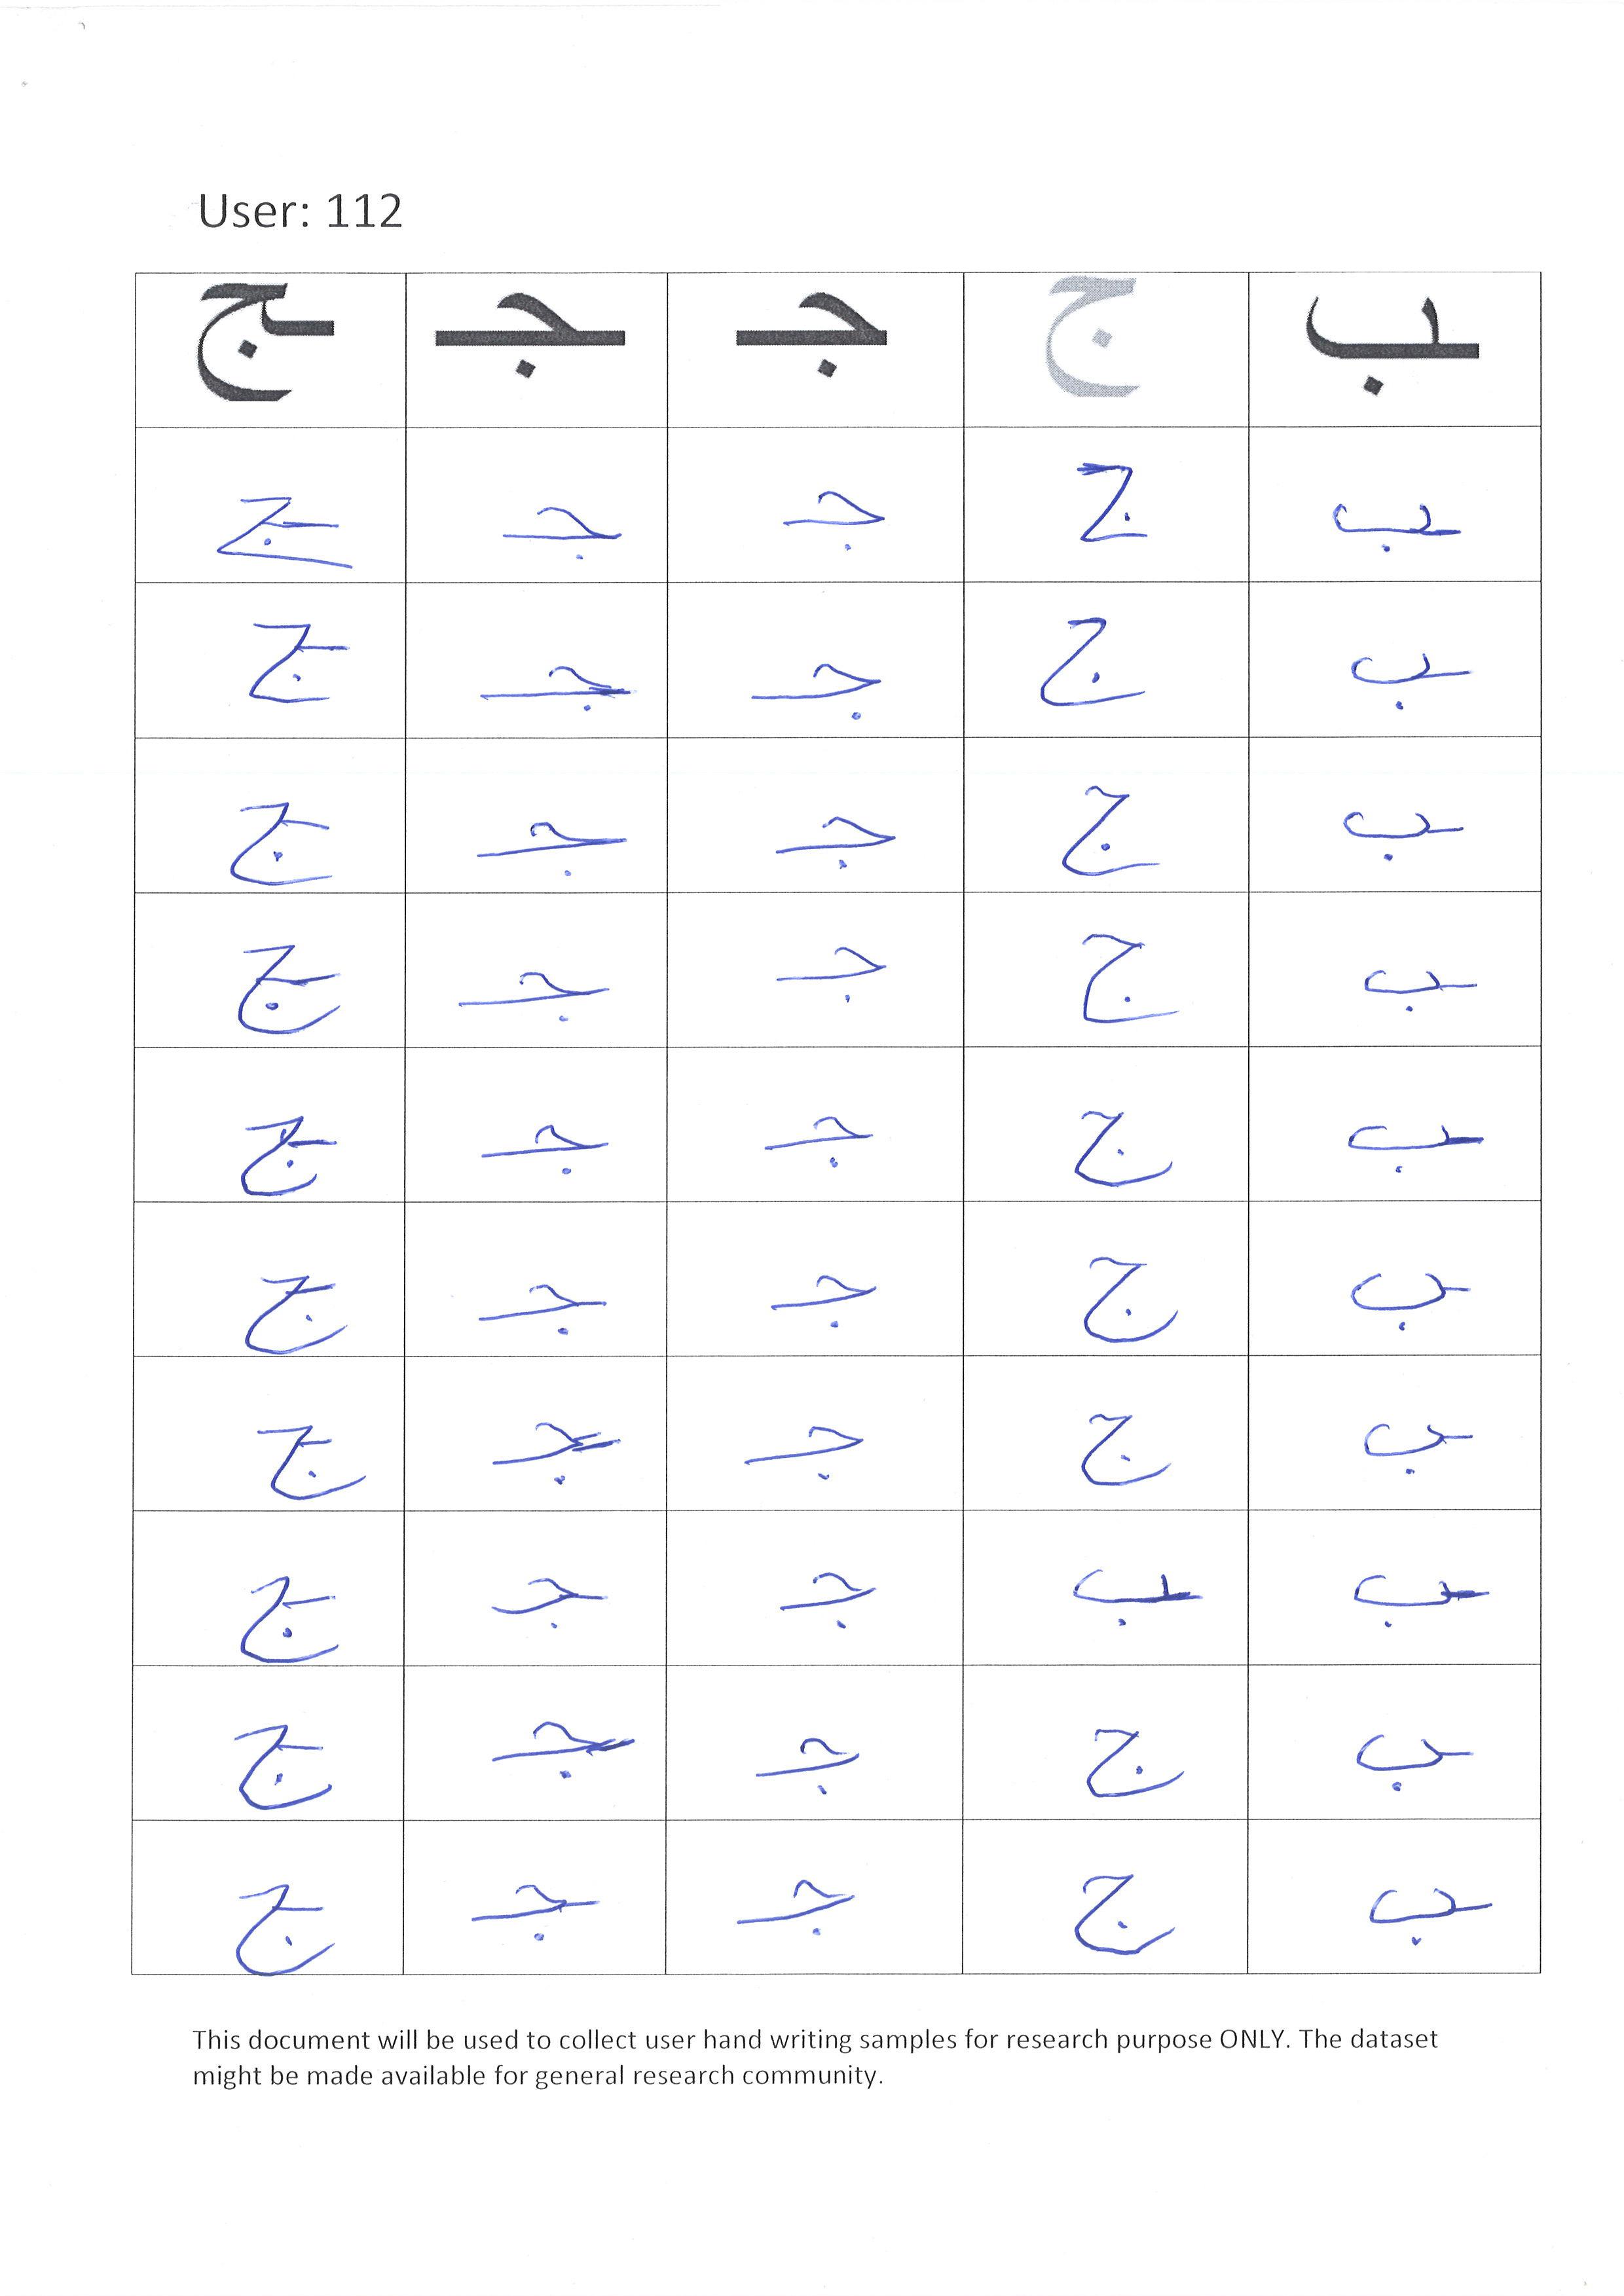 User: 112
ـب ج جـ ـجـ ـج
ـب ج جـ ـجـ ـج
ـب ج جـ ـجـ ـج
ـب ج جـ ـجـ ـج
ـب ج جـ ـجـ ـج
ـب ج جـ ـجـ ـج
ـب ج جـ ـجـ ـج
ـب ج جـ ـجـ ـج
ـب ـب جـ ـجـ ـج
ـب ج جـ ـجـ ـج
ـب ج جـ ـجـ ـج
This document will be used to collect user hand writing samples for research purpose ONLY. The dataset
might be made available for general research community.